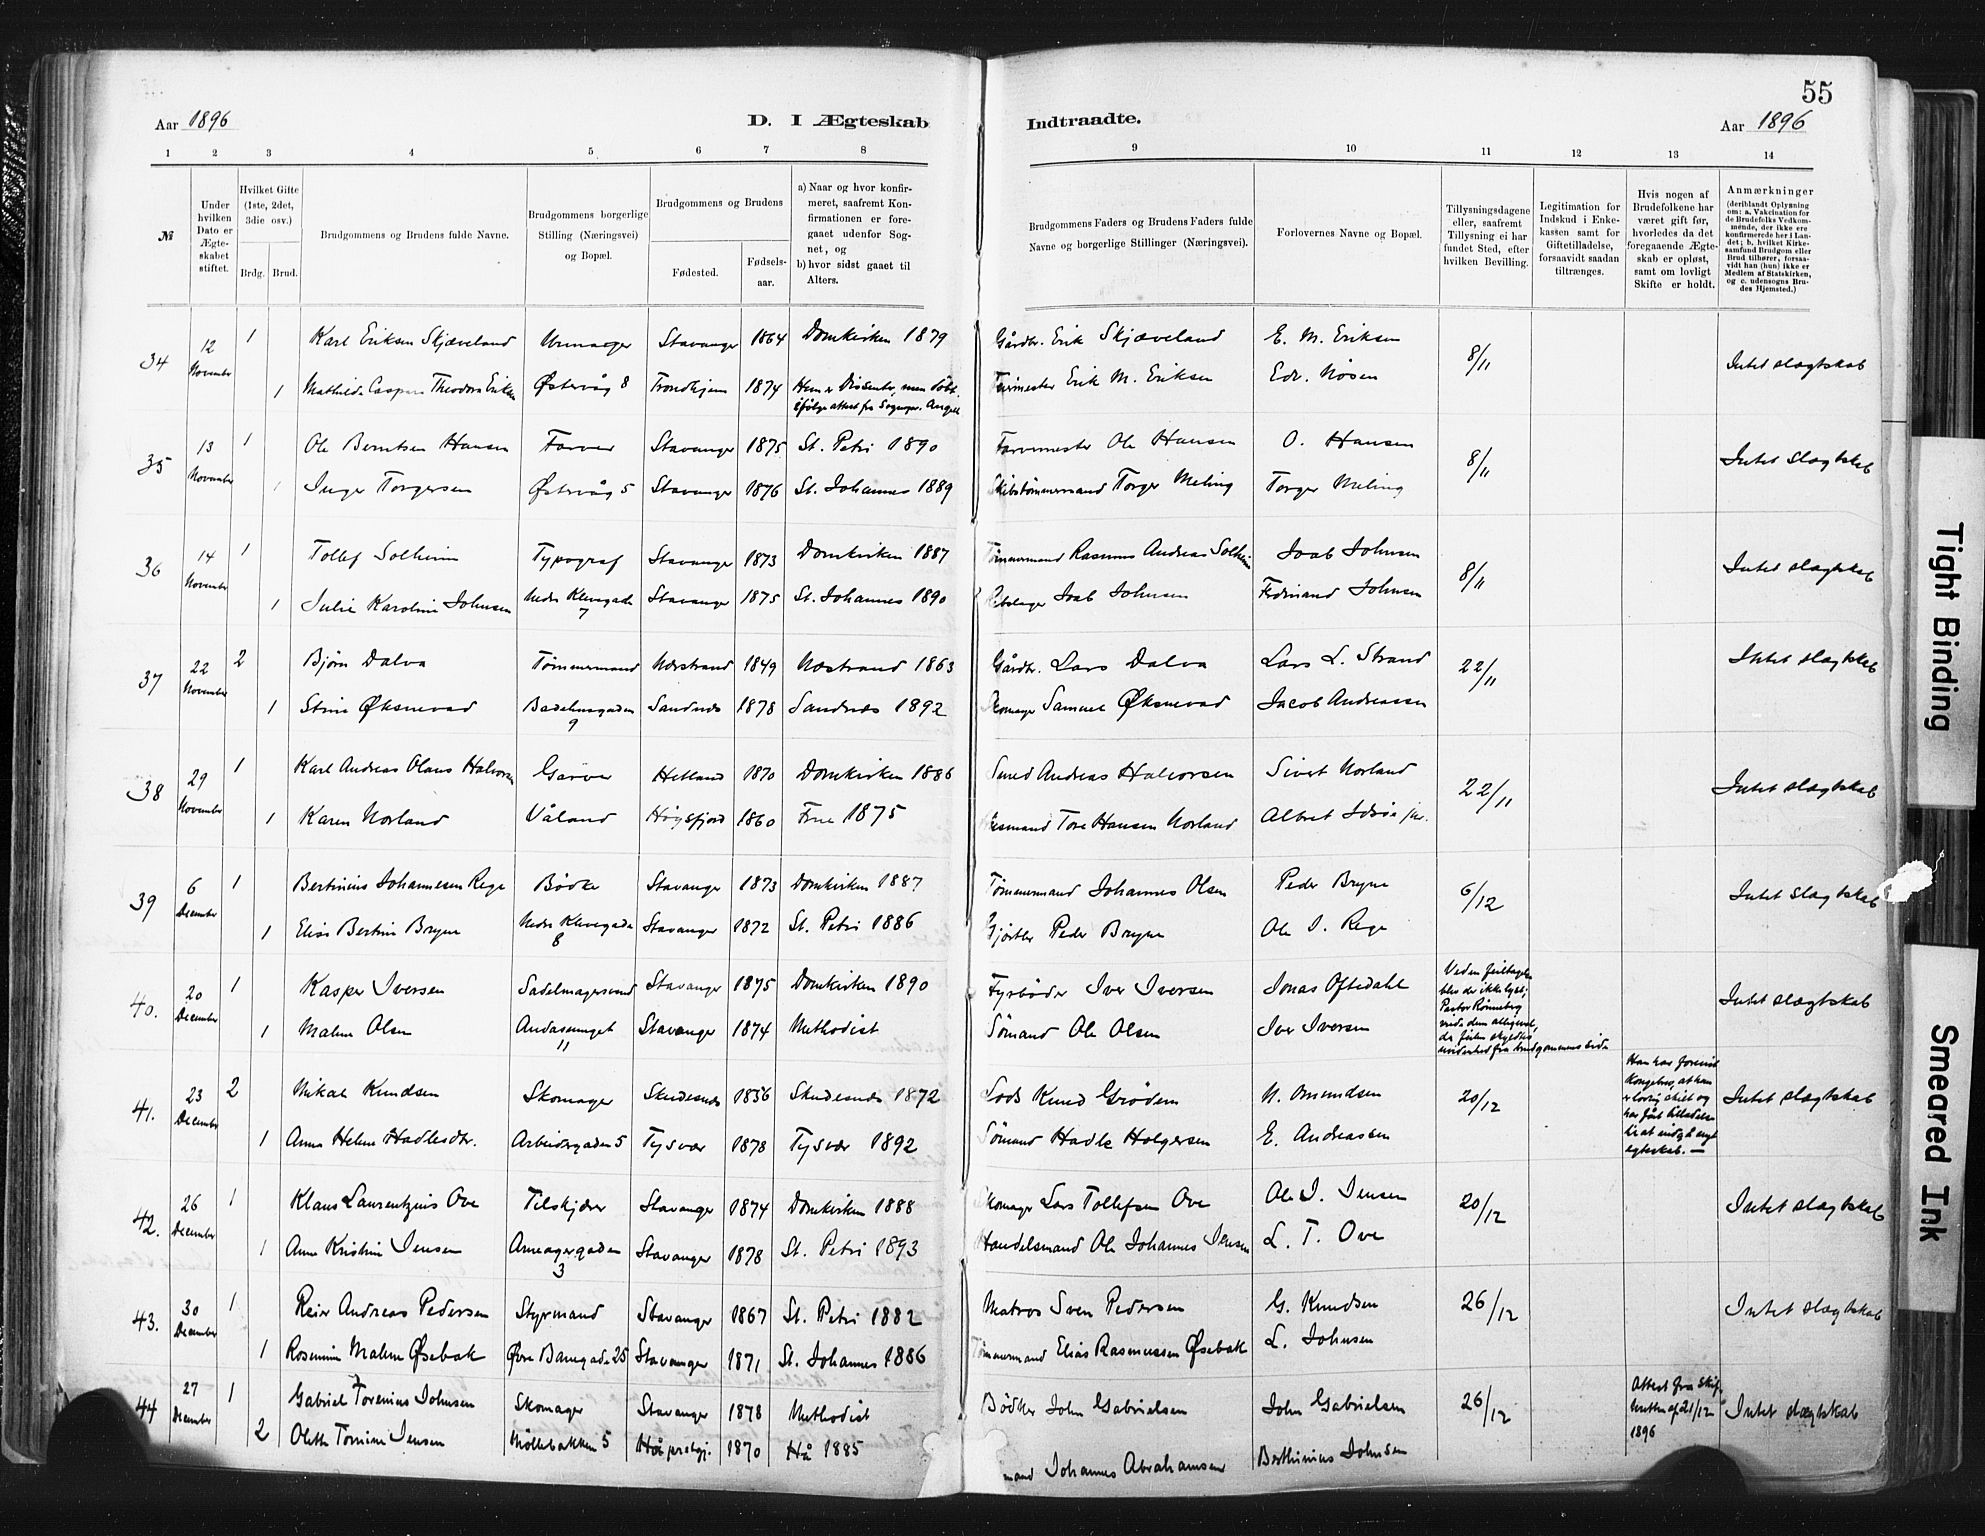 55
Aar 1896 D. I Ægteskab Indtraadte. Aar 1896
1 2 3 4 5 6 7 8 9 10 11 12 13 14
№
Under hvilken Dato er Ægteskabet stiftet.
Hvilket Gifte (1ste, 2det, 3die osv.)
Brdg. Brud.
Brudgommens og Brudens fulde Navne.
Brudgommens borgerlige Stilling (Næringsvei) og Bopæl.
Brudgommens og Brudens
Fødested.
Fødselsaar.
a) Naar og hvor konfirmeret, saafremt Konfirmationen er foregaaet udenfor Sognet, og
b) hvor sidst gaaet til Alters.
Brudgommens Faders og Brudens Faders fulde Navne og borgerlige Stillinger (Næringsvei).
Forlovernes Navne og Bopæl.
Tillysningsdagene eller, saafremt Tillysning ei har fundet Sted, efter hvilken Bevilling.
Legitimation for Indskud i Enkekassen samt for Giftetilladelse, forsaavidt saadan tiltrænges.
Hvis nogen af Brudefolkene har været gift før, hvorledes da det foregaaende Ægteskab er opløst, samt om lovligt Skifte er holdt.
Anmærkninger (deriblandt Oplysning om: a. Vakcination for de Brudefolks Vedkommende, der ikke ere konfirmerede her i Landet; b. hvilket Kirkesamfund Brudgom eller Brud tilhører, forsaavidt han (hun) ikke er Medlem af Statskirken, og c. udensogns Brudes Hjemsted.)
34 12 November 1 Karl Eriksen Skjæveland Urmager Stavanger 1864 Domkirken 1879 Gårdbr. Erik Skjæveland E. M. Eriksen 8/11 Intet slægtskab
1 Mathilde Theodora Østervåg 8 Trondhjem 1874 Hun er Dissenter, men døbt Erik M. Eriksen Edv.
ifølge attest fra
35 13 November 1 Ole Berntsen Hansen Farver Stavanger 1875 St. Petri 1890 Farvemester Ole Hansen O. Hansen 8/11 Intet slægtskab
1 Inger Torgersen Østervåg 5 Stavanger 1876 St. Johannes 1889 Skibstømmermand Torger Meling Torger Meling
36 14 November 1 Tollef Solheim Typograf Stavanger 1873 Domkirken 1887 Tømmermand Rasmus Andreas Solheim Joab Johnsen 8/11 Intet slægtskab
1 Julie Karoline Johnsen Nedre Klevegade 7 Stavanger 1875 St. Johannes 1890 Joab Johnsen Ferdinand Johnsen
37 22 November 2 Bjørn Dalva Tømmermand Nærstrand 1849 Næstrand 1863 Gårdbr. Lars Dalva Lars L. Strand 22/11 Intet slægtskab
1 Stine Øksnevad 9 Sandnes 1878 Sandnes 1892 Skomager Samuel Øksnevad Jacob Andreassen
38 29 November 1 Karl Andreas Olaus Halvorsen Garver Hetland 1870 Domkirken 1886 Smed Andreas Halvorsen Sivert Norland 22/11 Intet slægtskab
1 Karen Norland Våland Høgsfjord 1860 Frue 1875 Tore Hansen Norland Albret Idsøe jr.
39 6 December 1 Bertinius Johannesen Rege Bødker Stavanger 1873 Domkirken 1887 Tømmermand Johannes Olsen Peder Bryne 6/12 Intet slægtskab
1 Elise Bertine Bryne Nedre Klevegade 8 Stavanger 1872 St. Petri 1886 Gjørtler Peder Bryne Ole J. Rege
40. 20 December 1 Kasper Iversen Sadelmagersvend Stavanger 1875 Domkirken 1890 Fyrbøder Iver Iversen Jonas Oftedahl Ved en feiltagelse blev der ikke lyst; Pastor Rønneberg viede dem alligevel, da feilen skyldtes uvidenhed fra brudgommens side Intet slægtskab
1 Malene Olsen Andasmuget 11 Stavanger 1874 Methodist Sømand Ole Olsen Iver Iversen
41. 23 December 2 Mikal Knudsen Skomager Skudesnes 1856 Skudesnes 1872 Lods Knud Grødem N. Omundsen 20/12 Han har forevist Kongebrev, at han er lovlig skilt og har fået tilladelse til at indgå nyt egteskab. — Intet slægtskab
1 Anna Helene Hadlesdtr. Arbeidergaden 5 Tysvær 1878 Tysvær 1892 Sømand Hadle Holgersen E. Andreassen
42. 26 December 1 Klaus Laurentzius Ove Tilskjærer Stavanger 1874 Domkirken 1888 Skomager Lars Tollefsen Ove Ole J. Jensen 20/12 Intet slægtskab
1 Anne Kristine Jensen Ameagergaden 3 Stavanger 1878 St. Petri 1893 Handelsmand Ole Johannes Jensen L. T. Ove
43. 30 December 1 Reier Andreas Pedersen Styrmand Stavanger 1867 St. Petri 1882 Matros Sven Pedersen G. Knudsen 26/12 Intet slægtskab
1 Rosemine Malene Øsebak Øvre Banegade 25 Stavanger 1871 St. Johannes 1886 Tømmermand Elias Rasmussen Øsebak L. Johnsen
44 27 December 1 Gabriel Torenius Johnsen Skomager Stavanger 1878 Methodist Bødker John Gabrielsen John Gabrielsen 26/12 Attest fra Skifteretten af 21/12 1896 Intet slægtskab
2 Olette Tomine Jensen Møllebakken 5 Hå prstgj. 1870 Hå 1885 Johannes Abrahamsen Berthinius Johnsen
Tight Binding
Smeared Ink